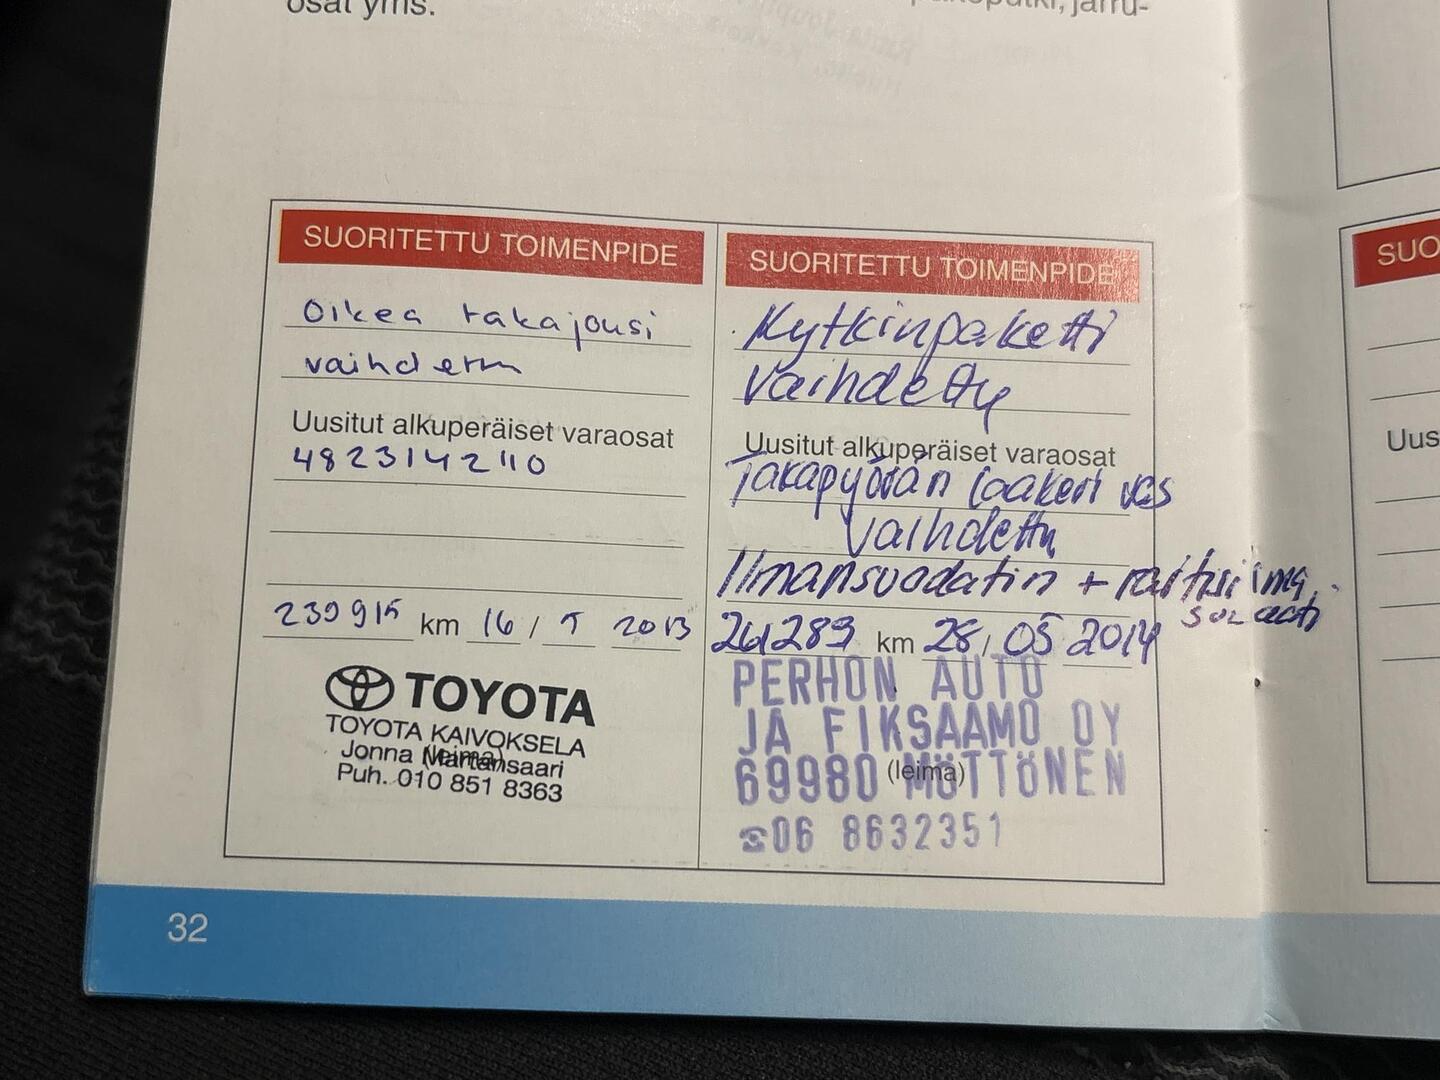 osat yms.
jarru-
SUORITETTU TOIMENPIDE
Oikea takajousi
vaihdettu
Uusitut alkuperäiset varaosat
4823142110
239915 km 16 / 5 2013
TOYOTA
TOYOTA KAIVOKSELA
Jonna Martansaari
(leima)
Puh. 010 851 8363
SUORITETTU TOIMENPIDE
Kytkinpaketti
vaihdettu
Uusitut alkuperäiset varaosat
Takapyörän laakeri vas
vaihdettu
Ilmansuodatin + raitisilma
suodatin
261289 km 28 / 05 2014
PERHON AUTO
JA FIKSAAMO OY
69980 MÖTTÖNEN
(leima)
☎06 8632351
SUO
Uus
32